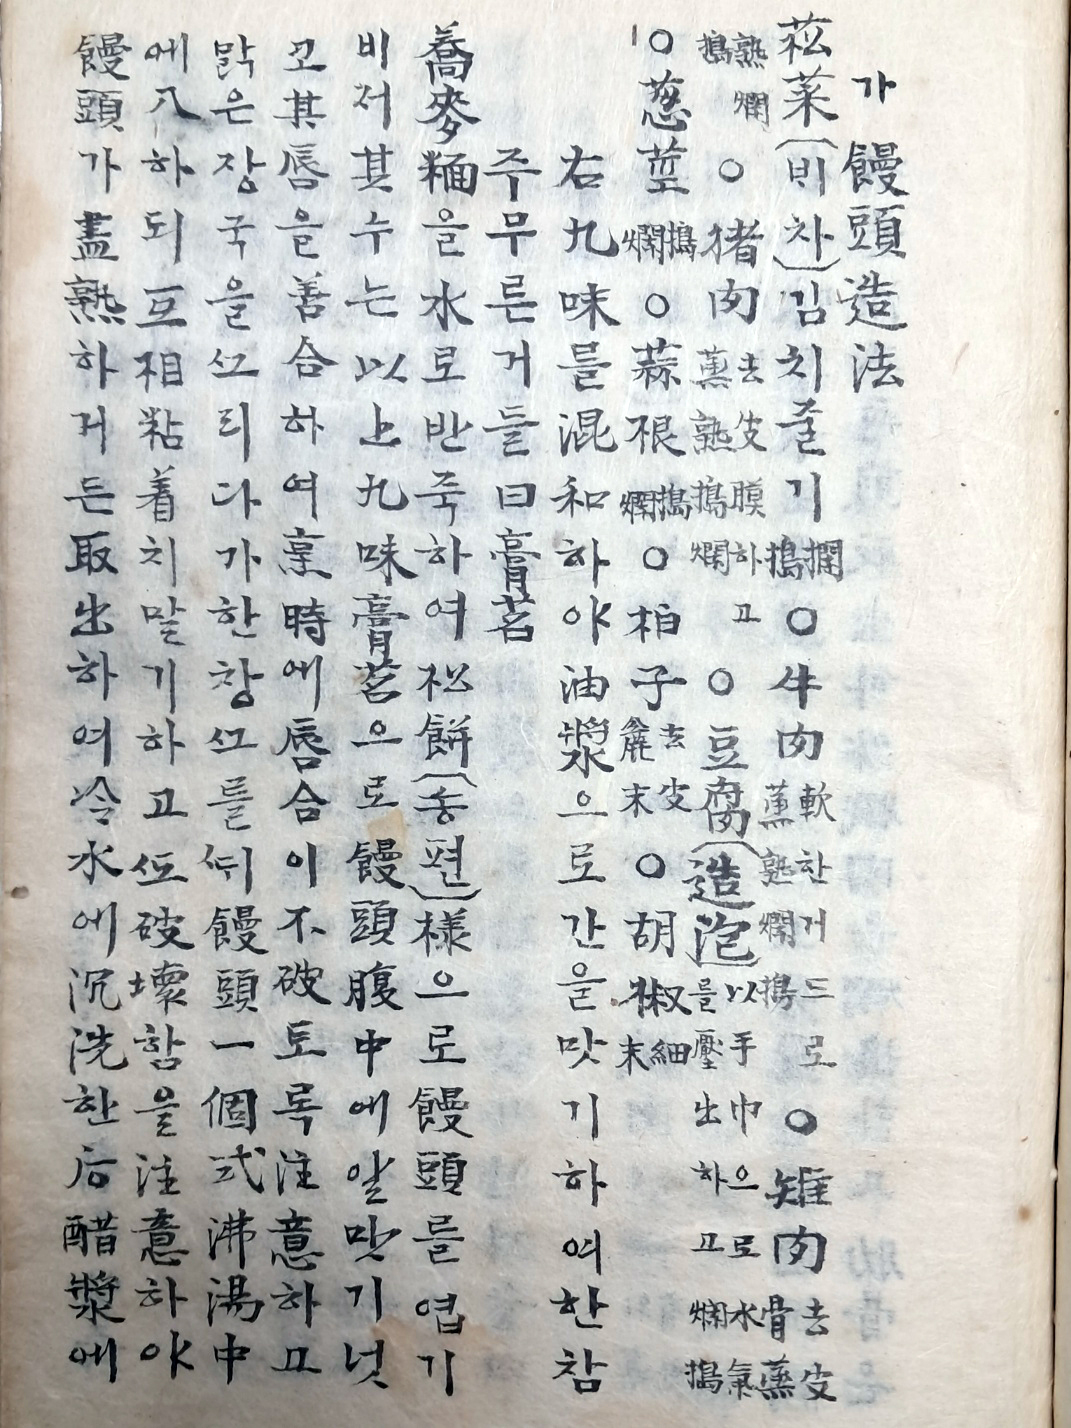 가 饅頭造法
菘菜(비차)김치줄기 擱搗 ○牛肉 軟한거드로 蒸熟爛搗 ○雉肉 去皮骨蒸
熟爛搗 ○猪肉 去皮膜하고 蒸熟搗爛 ○豆腐(造泡) 以手巾으로水氣를壓出하고爛搗
○葱莖 搗爛 ○蒜根 搗爛 ○柏子 去皮麁末 ○胡椒 細末
右九味를混和하야油漿으로간을맛기하여한참
주무른거들曰膏茗
蕎麥糆을水로반죽하여松餠(송편)樣으로饅頭를엽기
비저其수는以上九味膏茗으로饅頭腹中에알맛기넛
고其唇을善合하여烹時에唇合이不破토록注意하고
맑은장국을ᄭᅳ리다가한창ᄭᅳ를ᄯᅢ饅頭一個式沸湯中
에入하되互相粘着치말기하고ᄯᅩ破壞함을注意하야
饅頭가盡熟하거든取出하여冷水에沉洗한后醋漿에